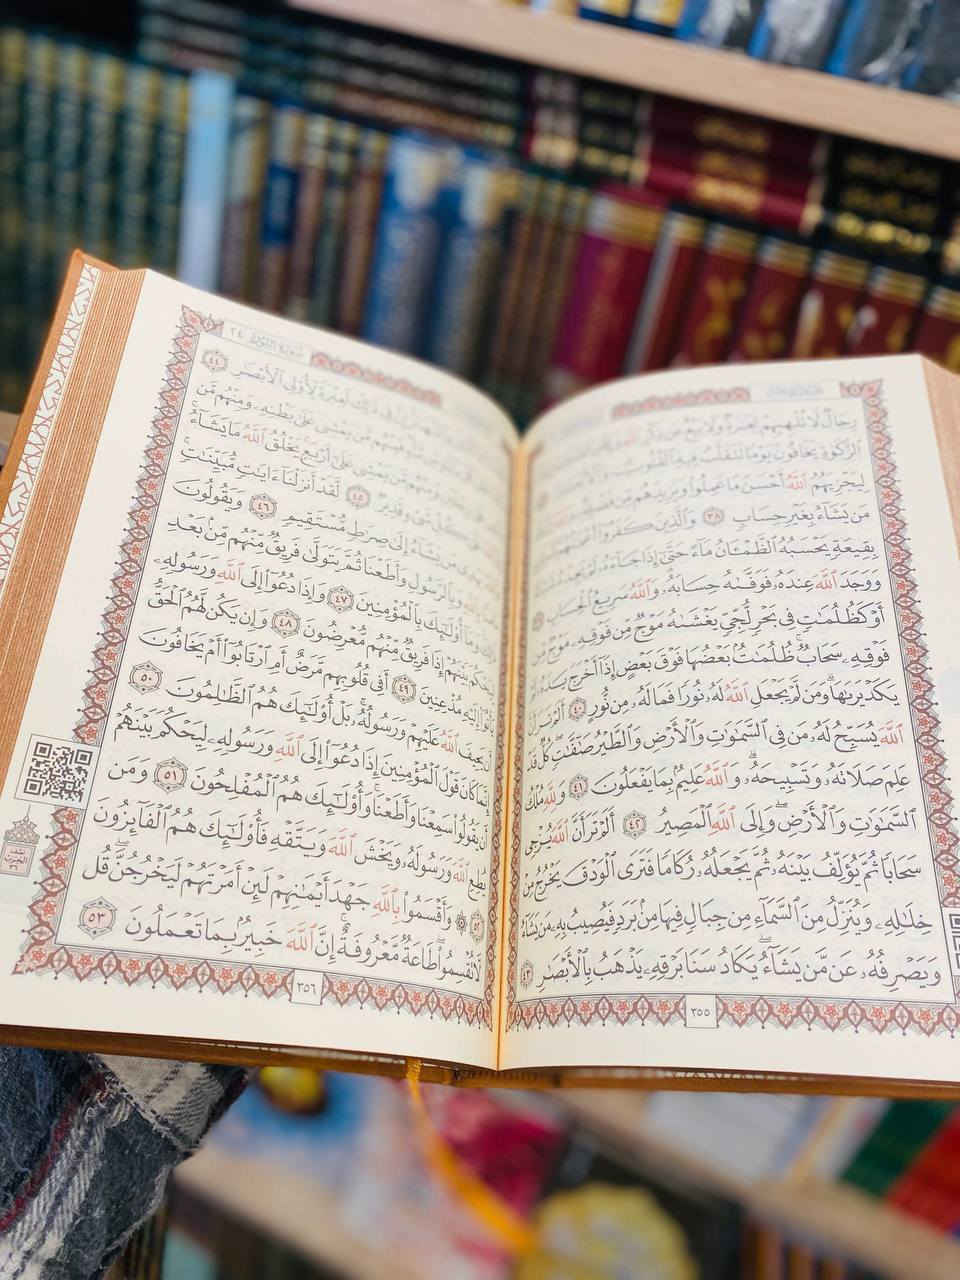 رِجَالٌ لَّا تُلْهِيهِمْ تِجَٰرَةٌ وَلَا بَيْعٌ عَن ذِكْرِ
ٱلزَّكَوٰةِ يَخَافُونَ يَوْمًا تَتَقَلَّبُ فِيهِ ٱلْقُلُوبُ
لِيَجْزِيَهُمُ ٱللَّهُ أَحْسَنَ مَا عَمِلُوا۟ وَيَزِيدَهُم مِّن
مَن يَشَآءُ بِغَيْرِ حِسَابٍ ٣٨ وَٱلَّذِينَ كَفَرُوٓا۟ أَعْمَٰلُهُمْ
بِقِيعَةٍ يَحْسَبُهُ ٱلظَّمْـَٔانُ مَآءً حَتَّىٰٓ إِذَا جَآءَهُۥ لَمْ يَجِدْهُ
وَوَجَدَ ٱللَّهَ عِندَهُۥ فَوَفَّىٰهُ حِسَابَهُۥ وَٱللَّهُ سَرِيعُ ٱلْحِسَابِ
أَوْ كَظُلُمَٰتٍ فِى بَحْرٍ لُّجِّىٍّ يَغْشَىٰهُ مَوْجٌ مِّن فَوْقِهِۦ مَوْجٌ مِّن
فَوْقِهِۦ سَحَابٌ ظُلُمَٰتٌۢ بَعْضُهَا فَوْقَ بَعْضٍ إِذَآ أَخْرَجَ يَدَهُۥ لَمْ
يَكَدْ يَرَىٰهَا وَمَن لَّمْ يَجْعَلِ ٱللَّهُ لَهُۥ نُورًا فَمَا لَهُۥ مِن نُّورٍ ٤٠ أَلَمْ تَرَ أَنَّ
ٱللَّهَ يُسَبِّحُ لَهُۥ مَن فِى ٱلسَّمَٰوَٰتِ وَٱلْأَرْضِ وَٱلطَّيْرُ صَٰٓفَّٰتٍ كُلٌّ قَدْ
عَلِمَ صَلَاتَهُۥ وَتَسْبِيحَهُۥ وَٱللَّهُ عَلِيمٌۢ بِمَا يَفْعَلُونَ ٤١ وَلِلَّهِ مُلْكُ
ٱلسَّمَٰوَٰتِ وَٱلْأَرْضِ وَإِلَى ٱللَّهِ ٱلْمَصِيرُ ٤٢ أَلَمْ تَرَ أَنَّ ٱللَّهَ يُزْجِى
سَحَابًا ثُمَّ يُؤَلِّفُ بَيْنَهُۥ ثُمَّ يَجْعَلُهُۥ رُكَامًا فَتَرَى ٱلْوَدْقَ يَخْرُجُ مِنْ
خِلَٰلِهِۦ وَيُنَزِّلُ مِنَ ٱلسَّمَآءِ مِن جِبَالٍ فِيهَا مِنۢ بَرَدٍ فَيُصِيبُ بِهِۦ مَن يَشَآءُ
وَيَصْرِفُهُۥ عَن مَّن يَشَآءُ يَكَادُ سَنَا بَرْقِهِۦ يَذْهَبُ بِٱلْأَبْصَٰرِ ٤٣
٣٥٥
سُورَةُ النُّورِ ٢٤
فِى ذَٰلِكَ لَعِبْرَةً لِّأُو۟لِى ٱلْأَبْصَٰرِ ٤٤
فَمِنْهُم مَّن يَمْشِى عَلَىٰ بَطْنِهِۦ وَمِنْهُم مَّن
وَمِنْهُم مَّن يَمْشِى عَلَىٰٓ أَرْبَعٍ يَخْلُقُ ٱللَّهُ مَا يَشَآءُ
كُلِّ شَىْءٍ قَدِيرٌ ٤٥ لَّقَدْ أَنزَلْنَآ ءَايَٰتٍ مُّبَيِّنَٰتٍ
مَن يَشَآءُ إِلَىٰ صِرَٰطٍ مُّسْتَقِيمٍ ٤٦ وَيَقُولُونَ
وَبِٱلرَّسُولِ وَأَطَعْنَا ثُمَّ يَتَوَلَّىٰ فَرِيقٌ مِّنْهُم مِّنۢ بَعْدِ
ذَٰلِكَ وَمَآ أُو۟لَٰٓئِكَ بِٱلْمُؤْمِنِينَ ٤٧ وَإِذَا دُعُوٓا۟ إِلَى ٱللَّهِ وَرَسُولِهِۦ
لِيَحْكُمَ بَيْنَهُمْ إِذَا فَرِيقٌ مِّنْهُم مُّعْرِضُونَ ٤٨ وَإِن يَكُن لَّهُمُ ٱلْحَقُّ
يَأْتُوٓا۟ إِلَيْهِ مُذْعِنِينَ ٤٩ أَفِى قُلُوبِهِم مَّرَضٌ أَمِ ٱرْتَابُوٓا۟ أَمْ يَخَافُونَ
أَن يَحِيفَ ٱللَّهُ عَلَيْهِمْ وَرَسُولُهُۥ بَلْ أُو۟لَٰٓئِكَ هُمُ ٱلظَّٰلِمُونَ ٥٠
إِنَّمَا كَانَ قَوْلَ ٱلْمُؤْمِنِينَ إِذَا دُعُوٓا۟ إِلَى ٱللَّهِ وَرَسُولِهِۦ لِيَحْكُمَ بَيْنَهُمْ
أَن يَقُولُوا۟ سَمِعْنَا وَأَطَعْنَا وَأُو۟لَٰٓئِكَ هُمُ ٱلْمُفْلِحُونَ ٥١ وَمَن
يُطِعِ ٱللَّهَ وَرَسُولَهُۥ وَيَخْشَ ٱللَّهَ وَيَتَّقْهِ فَأُو۟لَٰٓئِكَ هُمُ ٱلْفَآئِزُونَ
٥٢ وَأَقْسَمُوا۟ بِٱللَّهِ جَهْدَ أَيْمَٰنِهِمْ لَئِنْ أَمَرْتَهُمْ لَيَخْرُجُنَّ قُل
لَّا تُقْسِمُوا۟ طَاعَةٌ مَّعْرُوفَةٌ إِنَّ ٱللَّهَ خَبِيرٌۢ بِمَا تَعْمَلُونَ ٥٣
٣٥٦